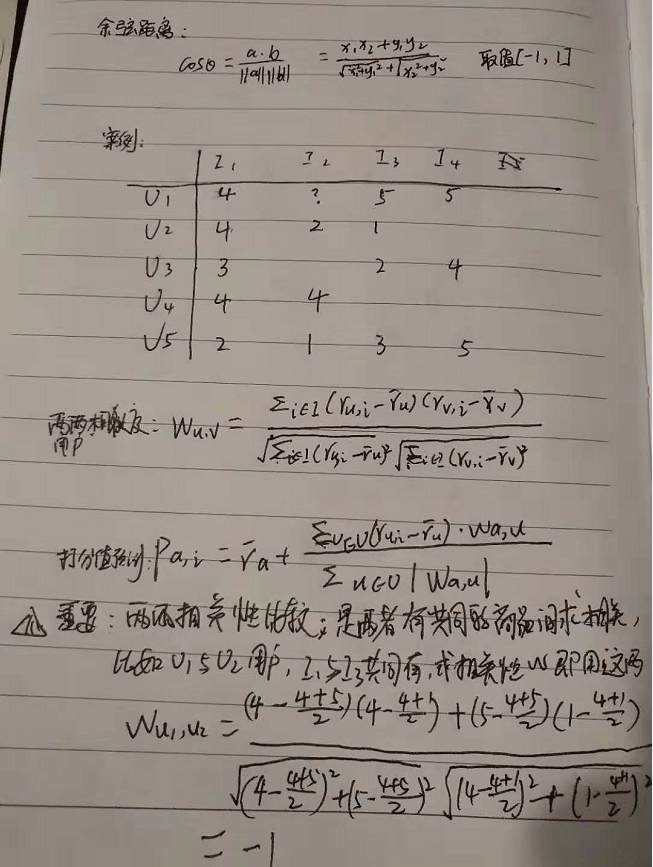 余弦距离:
cosθ = a·b / ||a|| ||b|| = x₁x₂+y₁y₂ / √x₁²+y₁² + √x₂²+y₂² 取值[-1, 1]
案例:
I₁ I₂ I₃ I₄
U1 4 ? 5 5
U2 4 2 1
U3 3 2 4
U4 4 4
U5 2 1 3 5
两两相似度: Wu,v = Σi∈I (ru,i - r̄u)(rv,i - r̄v) / √Σi∈I(ru,i - r̄u)² √Σi∈I(rv,i - r̄v)²
用户
打分值预测: Pa,i = r̄a + Σu∈U(ru,i - r̄u)·wa,u / Σu∈U |Wa,u|
重要: 两两相关性比较; 是两者有共同的商品间求相关,
比如U1与U2用户, I₁与I₃共同有, 求相关性W即用这两
Wu₁,u₂ = (4 - 4+5/2)(4 - 4+1/2) + (5 - 4+5/2)(1 - 4+1/2) / √(4 - 4+5/2)² + (5 - 4+5/2)² √(4 - 4+1/2)² + (1 - 4+1/2)²
= -1